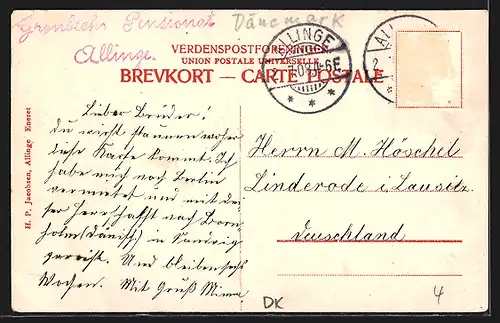 Grønbechs Pensionat
Allinge.
Dänemark
VERDENSPOSTFORENINGEN.
UNION POSTALE UNIVERSELLE.
BREVKORT — CARTE POSTALE
ALLINGE
7.08 4-6E
ALL
2
H. P. Jacobsen, Allinge Eneret
Lieber Brüder!
Du wirst staunen woher
diese Karte kommt. Ich
habe mich nach Berlin
vermietet und mit die
ser Herrschaft nach Born-
holm (Dänisch) in
gereist. Und bleiben sechs
Wochen. Mit Gruß Minna
Herrn M. Höschel
Linderode i. Lausitz.
Deuschland
DK
4